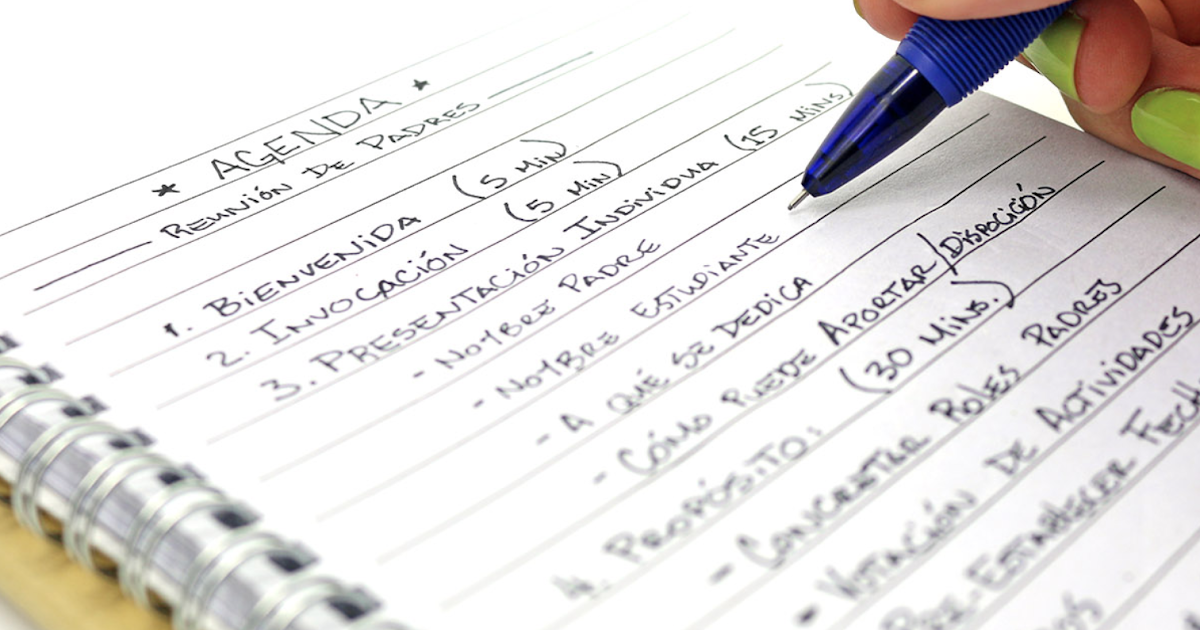 ★ AGENDA ★
REUNIÓN DE PADRES
1. BIENVENIDA (5 MIN)
2. INVOCACIÓN (5 MIN)
3. PRESENTACIÓN INDIVIDUA (15 MINS)
- NOMBRE PADRE
- NOMBRE ESTUDIANTE
- A QUÉ SE DEDICA
- CÓMO PUEDE APORTAR/DISPOCICIÓN
4. PROPÓSITO: (30 MINS.)
- CONCERTAR ROLES PADRES
- VOTACIÓN DE ACTIVIDADES
PRE-ESTABLECER